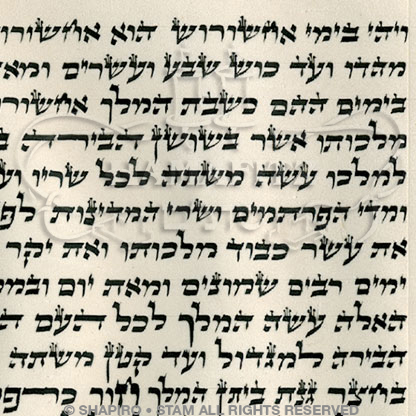 ויהי בימי אחשורוש הוא אחשורו
מהדו ועד כוש שבע ועשרים ומא
בימים ההם כשבת המלך אחשורו
מלכותו אשר בשושן הבירה
למלכו עשה משתה לכל שריו וע
ומדי הפרתמים ושרי המדינות לפ
את עשר כבוד מלכותו ואת יקר
ימים רבים שמונים ומאת יום ובמל
האלה עשה המלך לכל העם ה
הבירה למגדול ועד קטן משתה
בחצר גנת ביתן המלך חור כרפ
© SHAPIRO • STAM ALL RIGHTS RESERVED